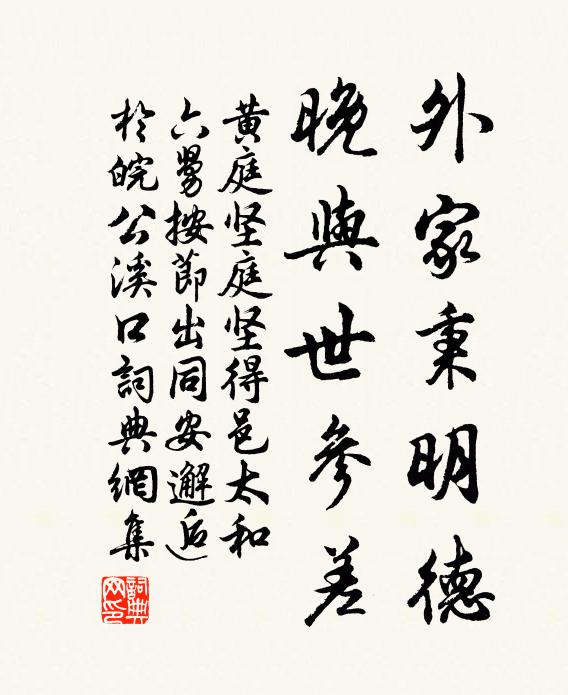 外家秉明德
晚與世參差
黄庭坚庭坚得邑太和
六舅按節出同安邂逅
於皖公溪口詞典網集
詞典網印